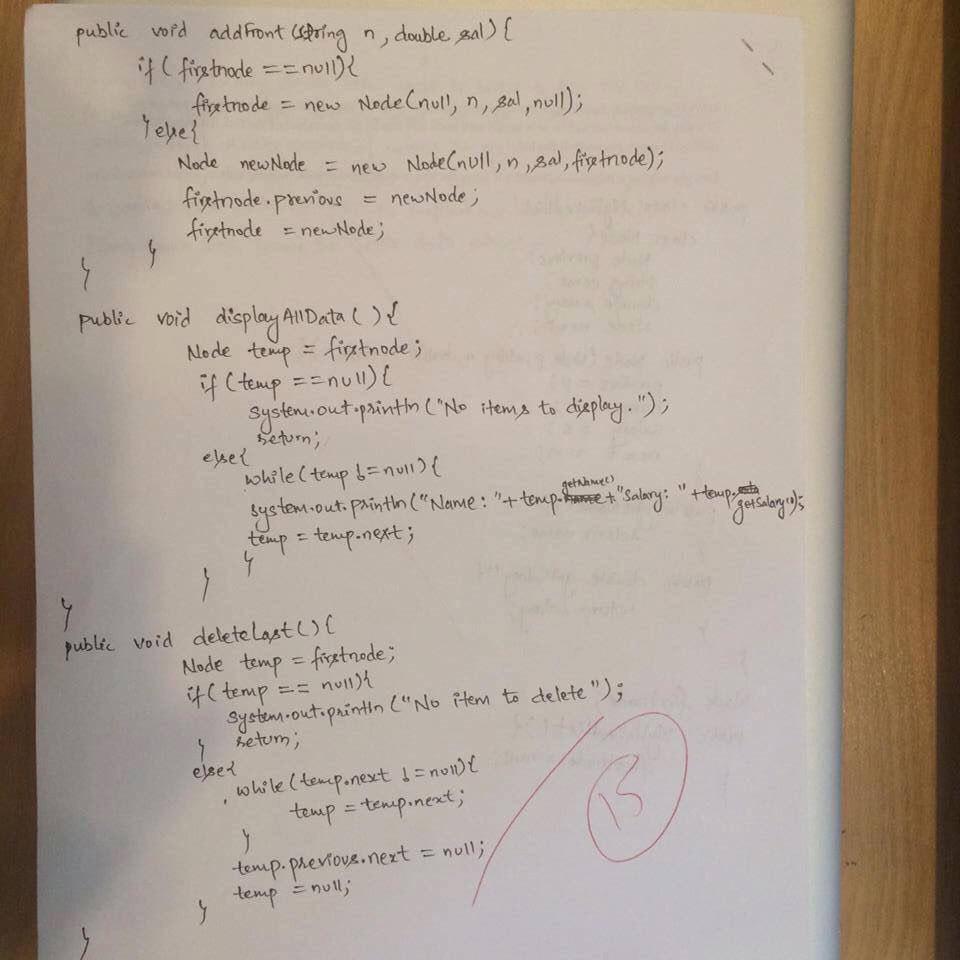 public void addFront(String n, double sal){
if(firstnode ==null){
firstnode = new Node(null, n, sal, null);
}else{
Node newNode = new Node(null, n, sal, firstnode);
firstnode.previous = newNode;
firstnode = newNode;
}
}
public void displayAllData(){
Node temp = firstnode;
if(temp ==null){
system.out.println("No items to display.");
return;
else{
while(temp !=null){
system.out.println("Name: "+temp.getName()+"Salary: "+temp.getSalary());
temp = temp.next;
}
}
}
public void deleteLast(){
Node temp = firstnode;
if(temp == null){
system.out.println("No item to delete");
return;
}
else{
while(temp.next !=null){
temp = temp.next;
}
temp.previous.next = null;
temp = null;
}
}